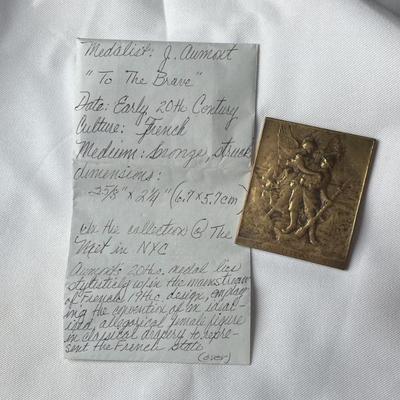 Medalist: J. Aumont
"To The Brave"
Date: Early 20th Century
Culture: French
Medium: bronze, struck
dimensions:
2 5/8" x 2 1/4" (6.7 x 5.7cm)
in the collection @ The
Met in NYC
Aumont's 20th c. medal lies
stylistically w/in the mainstream
of French 19th c. design, employ-
ing the convention of an ideal-
ized, allegorical female figure
in classical drapery to repre-
sent the French State
(over)